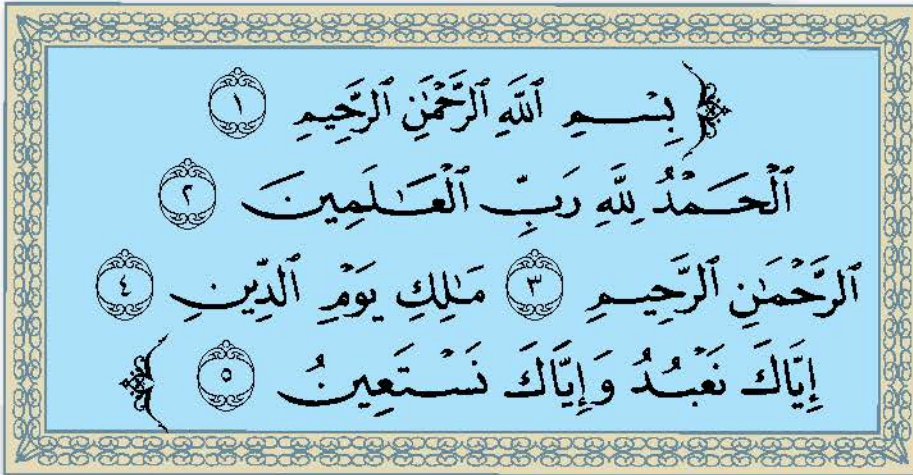 ﴿ بِسْمِ ٱللَّهِ ٱلرَّحْمَٰنِ ٱلرَّحِيمِ ١
ٱلْحَمْدُ لِلَّهِ رَبِّ ٱلْعَـٰلَمِينَ ٢
ٱلرَّحْمَٰنِ ٱلرَّحِيمِ ٣ مَـٰلِكِ يَوْمِ ٱلدِّينِ ٤
إِيَّاكَ نَعْبُدُ وَإِيَّاكَ نَسْتَعِينُ ٥ ﴾